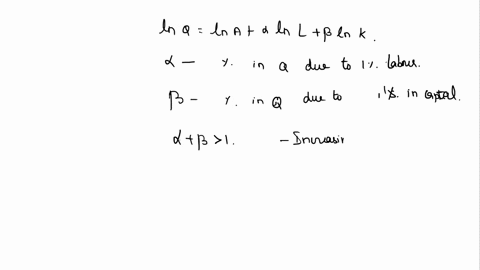 ln Q = ln A + α ln L + β ln K.
α — % in Q due to 1% labour.
β - % in Q due to 1% in capital.
α + β > 1. - Increasin